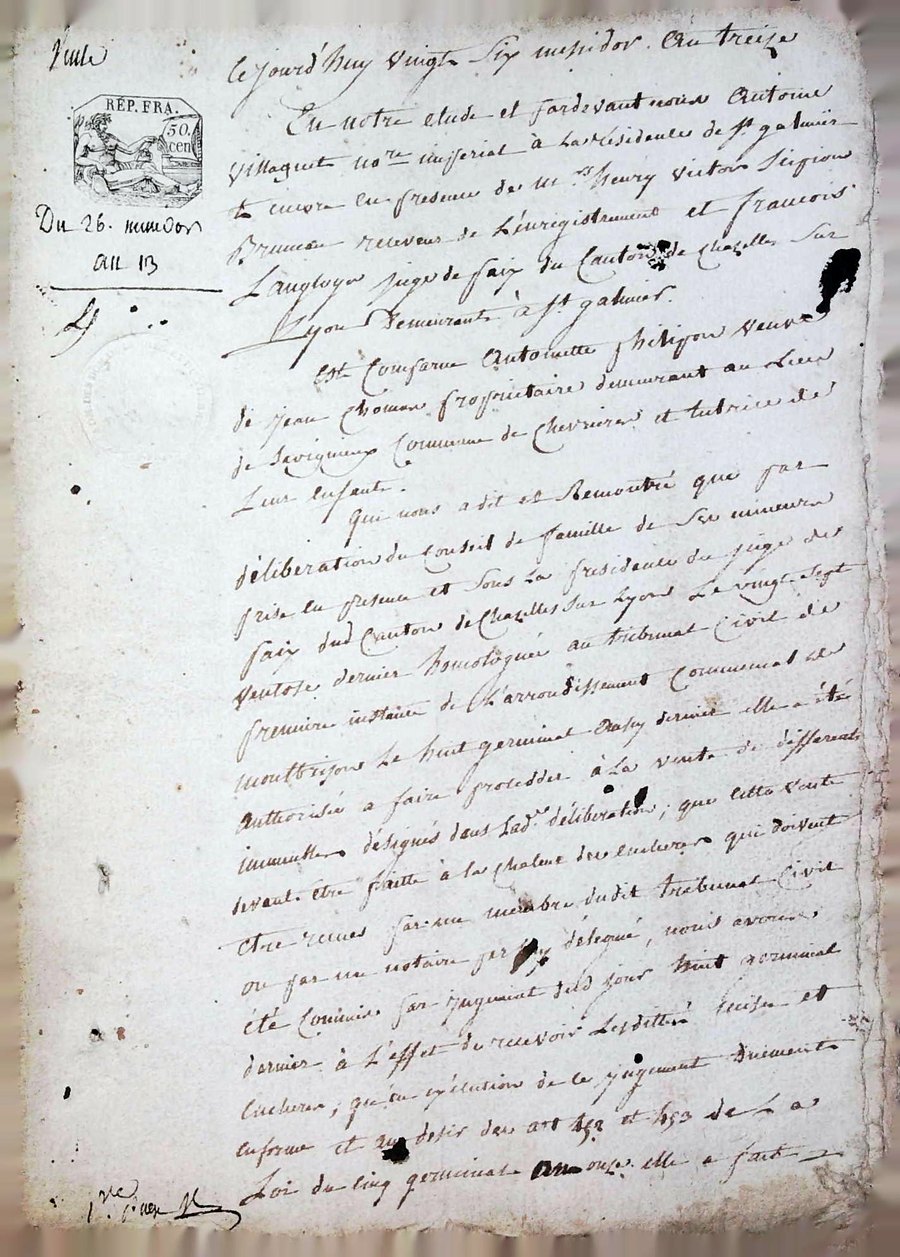 Vente
REP. FRA.
50.
cen
Du 26. messidor
an 13
Ce jourd'huy vingt Six messidor. An treize
En notre etude et pardevant nous Antoine
Villaquet no.re imperial à La résidence de St galmier
en presence de m.rs héury Victor Scipion
Bruneau receveur de L'enregistrement et francois
Langloys juge de paix du Canton de Chazelles Sur
Lyon Demeurants à St galmier.
Est Comparue Antoinette philipon veuve
de jean Chomas proprietaire demeurant au Lieu
de Savigneux Commune de Chevrieres et tutrice de
Leur enfants.
Qui nous a dit et Remontré que par
déliberation du Conseil de famille de Ses mineurs
prise en presence et Sous La présidence du juge de
paix dud Canton de Chazelles Sur Lyon Le vingt Sept
Ventose dernier homologuée au tribunal Civil de
premiere instance de L'arrondissement Communal de
montbrison Le huit germinal dernier elle a été
authorisée a faire proceder à La vente de différents
immeubles désignés dans Lad.e déliberation, que Cette vente
devant être faitte à la Chaleur des encheres qui doivent
etre recues par un membre dudit tribunal Civil
ou par un notaire par délégué, nous avons
été Commis par jugement dud jour huit germinal
dernier à L'effet de recevoir Lesdittes et
encheres, qu'en exécution de ce jugement Duement
en forme et au desir des art 452 et 453 de La
Loi du Cinq germinal an onze elle a fait